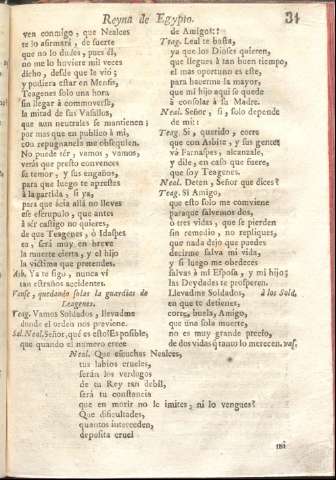 Reyna de Egypto.
31
ven conmigo, que Nealces
te lo afirmará, de suerte
que no lo dudes, pues él,
no me lo huviere mil veces
dicho, desde que le vió;
y pudiera estar en Menfis,
Teagenes solo una hora
sin llegar à commoverse,
la mitad de sus Vasallos,
que aun neutrales se mantienen;
por mas que en publico à mi,
con repugnancia me obsequien.
No puede sér, vamos, vamos,
verás que presto convences
su temor, y sus engaños,
para que luego te aprestes
à la partida, si ya,
para que ácia allá no lleves
ese escrupulo, que antes
à sér castigo no quieres,
de que Teagenes, ó Idaspes
en, será muy en breve
la muerte cierta, y el hijo
la victima que pretendes.
Asb. Ya te sigo, nunca ví
tan estraños accidentes.
Vanse, quedando solas la guardias de
Teagenes.
Teag. Vamos Soldados, llevadme
donde el orden nos previene.
Sal. Neal. Señor, qué es esto! Es posible,
que quando el numero crece
de Amigos!!
Teag. Leal te basta,
ya que los Dioses quieren,
que llegues à tan buen tiempo,
el mas oportuno es este,
para hacerme la mayor,
que mi hijo aqui se quede
à consolar á su Madre.
Neal. Señor, si, solo depende
de mi::
Teag. Si, querido, corre
que con Asbite, y sus gentes
vá Farnaspes, alcanzale,
y dile, en caso que fuere,
que soy Teagenes.
Neal. Deten, Señor que dices?
Teag. Si Amigo,
que esto solo me conviene
paraque salvemos dos,
ò tres vidas, que se pierden
sin remedio, no repliques,
que nada dejo que puedes
decirme salva mi vida,
y si luego me obedeces
salvas à mi Esposa, y mi hijo;
las Deydades te prosperen.
Llevadme Soldados, à los Sold.
en que te detienes,
corre, buela, Amigo,
que una sola muerte,
no es muy grande precio,
de dos vidas q̃ tanto lo merecen. vas.
Neal. Que escuchas Nealces,
tus labios crueles,
serán los verdugos
de tu Rey tan debil,
será tu constancia
que en morir no le imites; ni lo vengues?
Que dificultades,
quantos interceden,
deposita cruel
mi